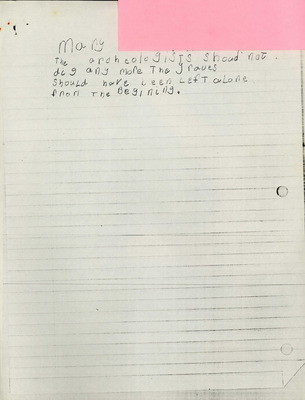 Mary
The archeologists shoud not
dig any more The graves
should have been left alone
from The Begining.